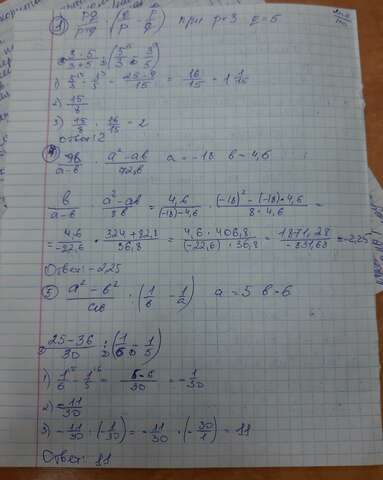 ③ pq/p+q · (q/p - p/q) при p=3 q=5
3·5/3+5 · (5/3 - 3/5)
1) 5/3 - 3/5 = 25-9/15 = 16/15 = 1 1/15
2) 15/8
3) 15/8 · 16/15 = 2
Ответ: 2
④ 9в/a-в · a²-aв/72в a=-18 в=4,6
в/a-в · a²-aв/8в = 4,6/(-18)-4,6 · (-18)²-(-18)·4,6/8·4,6 =
= 4,6/-22,6 · 324+82,8/36,8 = 4,6·406,8/(-22,6)·36,8 = 1871,28/-831,68 = -2,25
Ответ: -2,25
⑤ a²-в²/aв : (1/в - 1/a) a=5 в=6
25-36/30 : (1/6 - 1/5)
1) 1/6 - 1/5 = 5-6/30 = -1/30
2) -11/30
3) -11/30 : (-1/30) = -11/30 · (-30/1) = 11
Ответ: 11